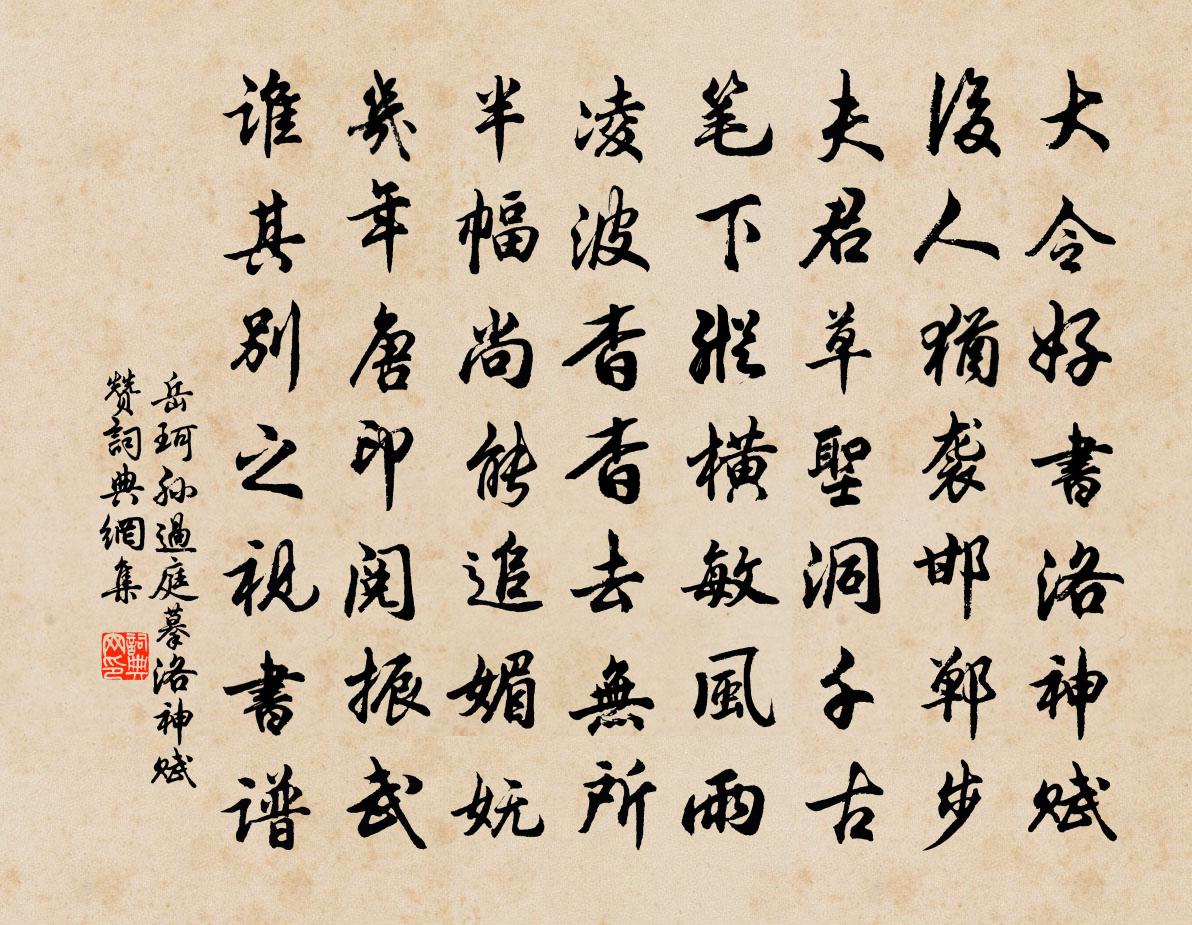 大令好書洛神赋
後人猶袭邯鄲步
夫君草聖洞千古
笔下縱横敏風雨
凌波杳杳去無所
半幅尚能追媚妩
幾年唐印阅振武
谁其别之視書谱
岳珂孙過庭摹洛神赋
赞詞典網集
詞典网印